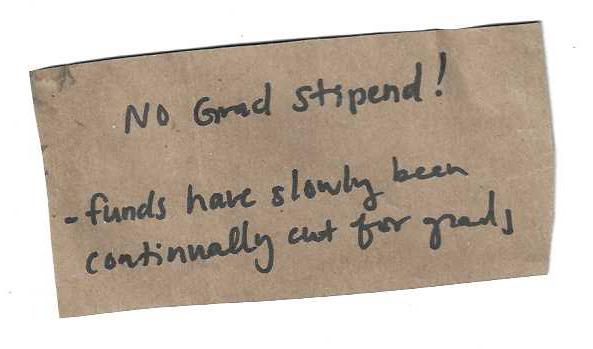 No Grad stipend!
- funds have slowly been
continually cut for grads